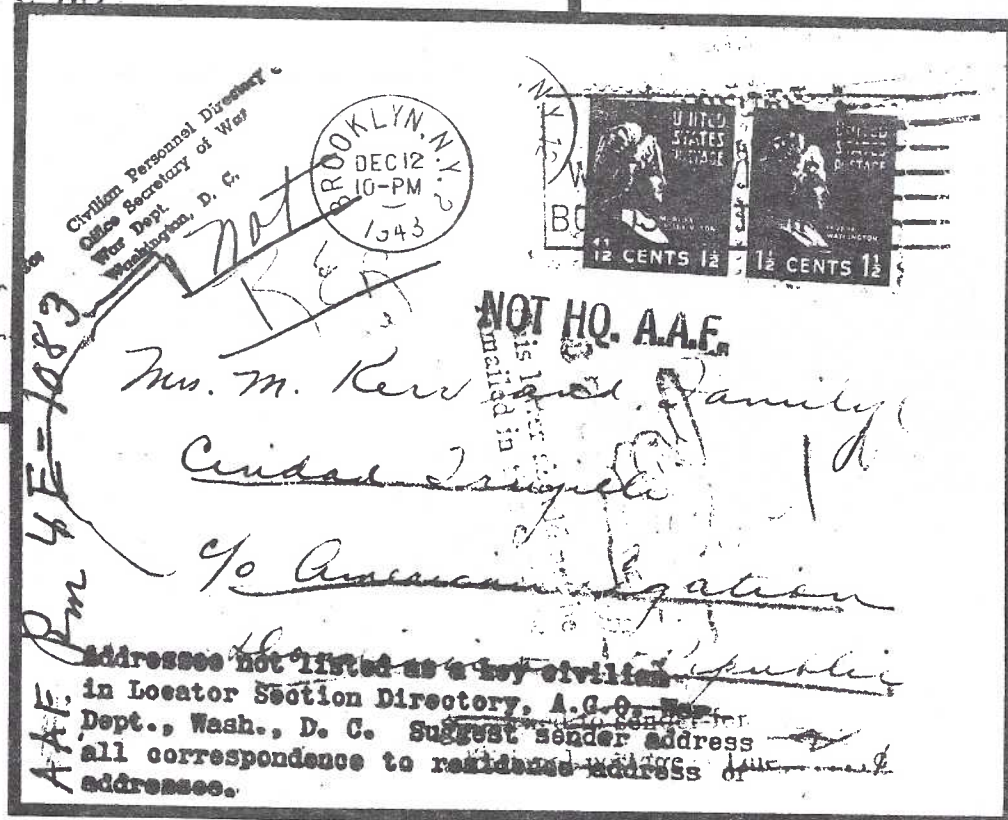 Civilian Personnel Directory
Office Secretary of War
War Dept.
Washington, D. C.
Not
BROOKLYN, N.Y. 2
DEC 12
10-PM
1943
N.Y. 12
UNITED
STATES
POSTAGE
MARTHA
WASHINGTON
1½ CENTS 1½
UNITED
STATES
POSTAGE
MARTHA
WASHINGTON
1½ CENTS 1½
NOT HQ. A.A.F.
Mrs. M. Kerr and Family
Ciudad Trujillo
c/o American Legation
Dominican Republic
A.A.F. Rm 4E-1083
Addressee not listed as a key civilian
in Locator Section Directory, A.G.O. War
Dept., Wash., D. C. Suggest sender address
all correspondence to residence address of
addressee.